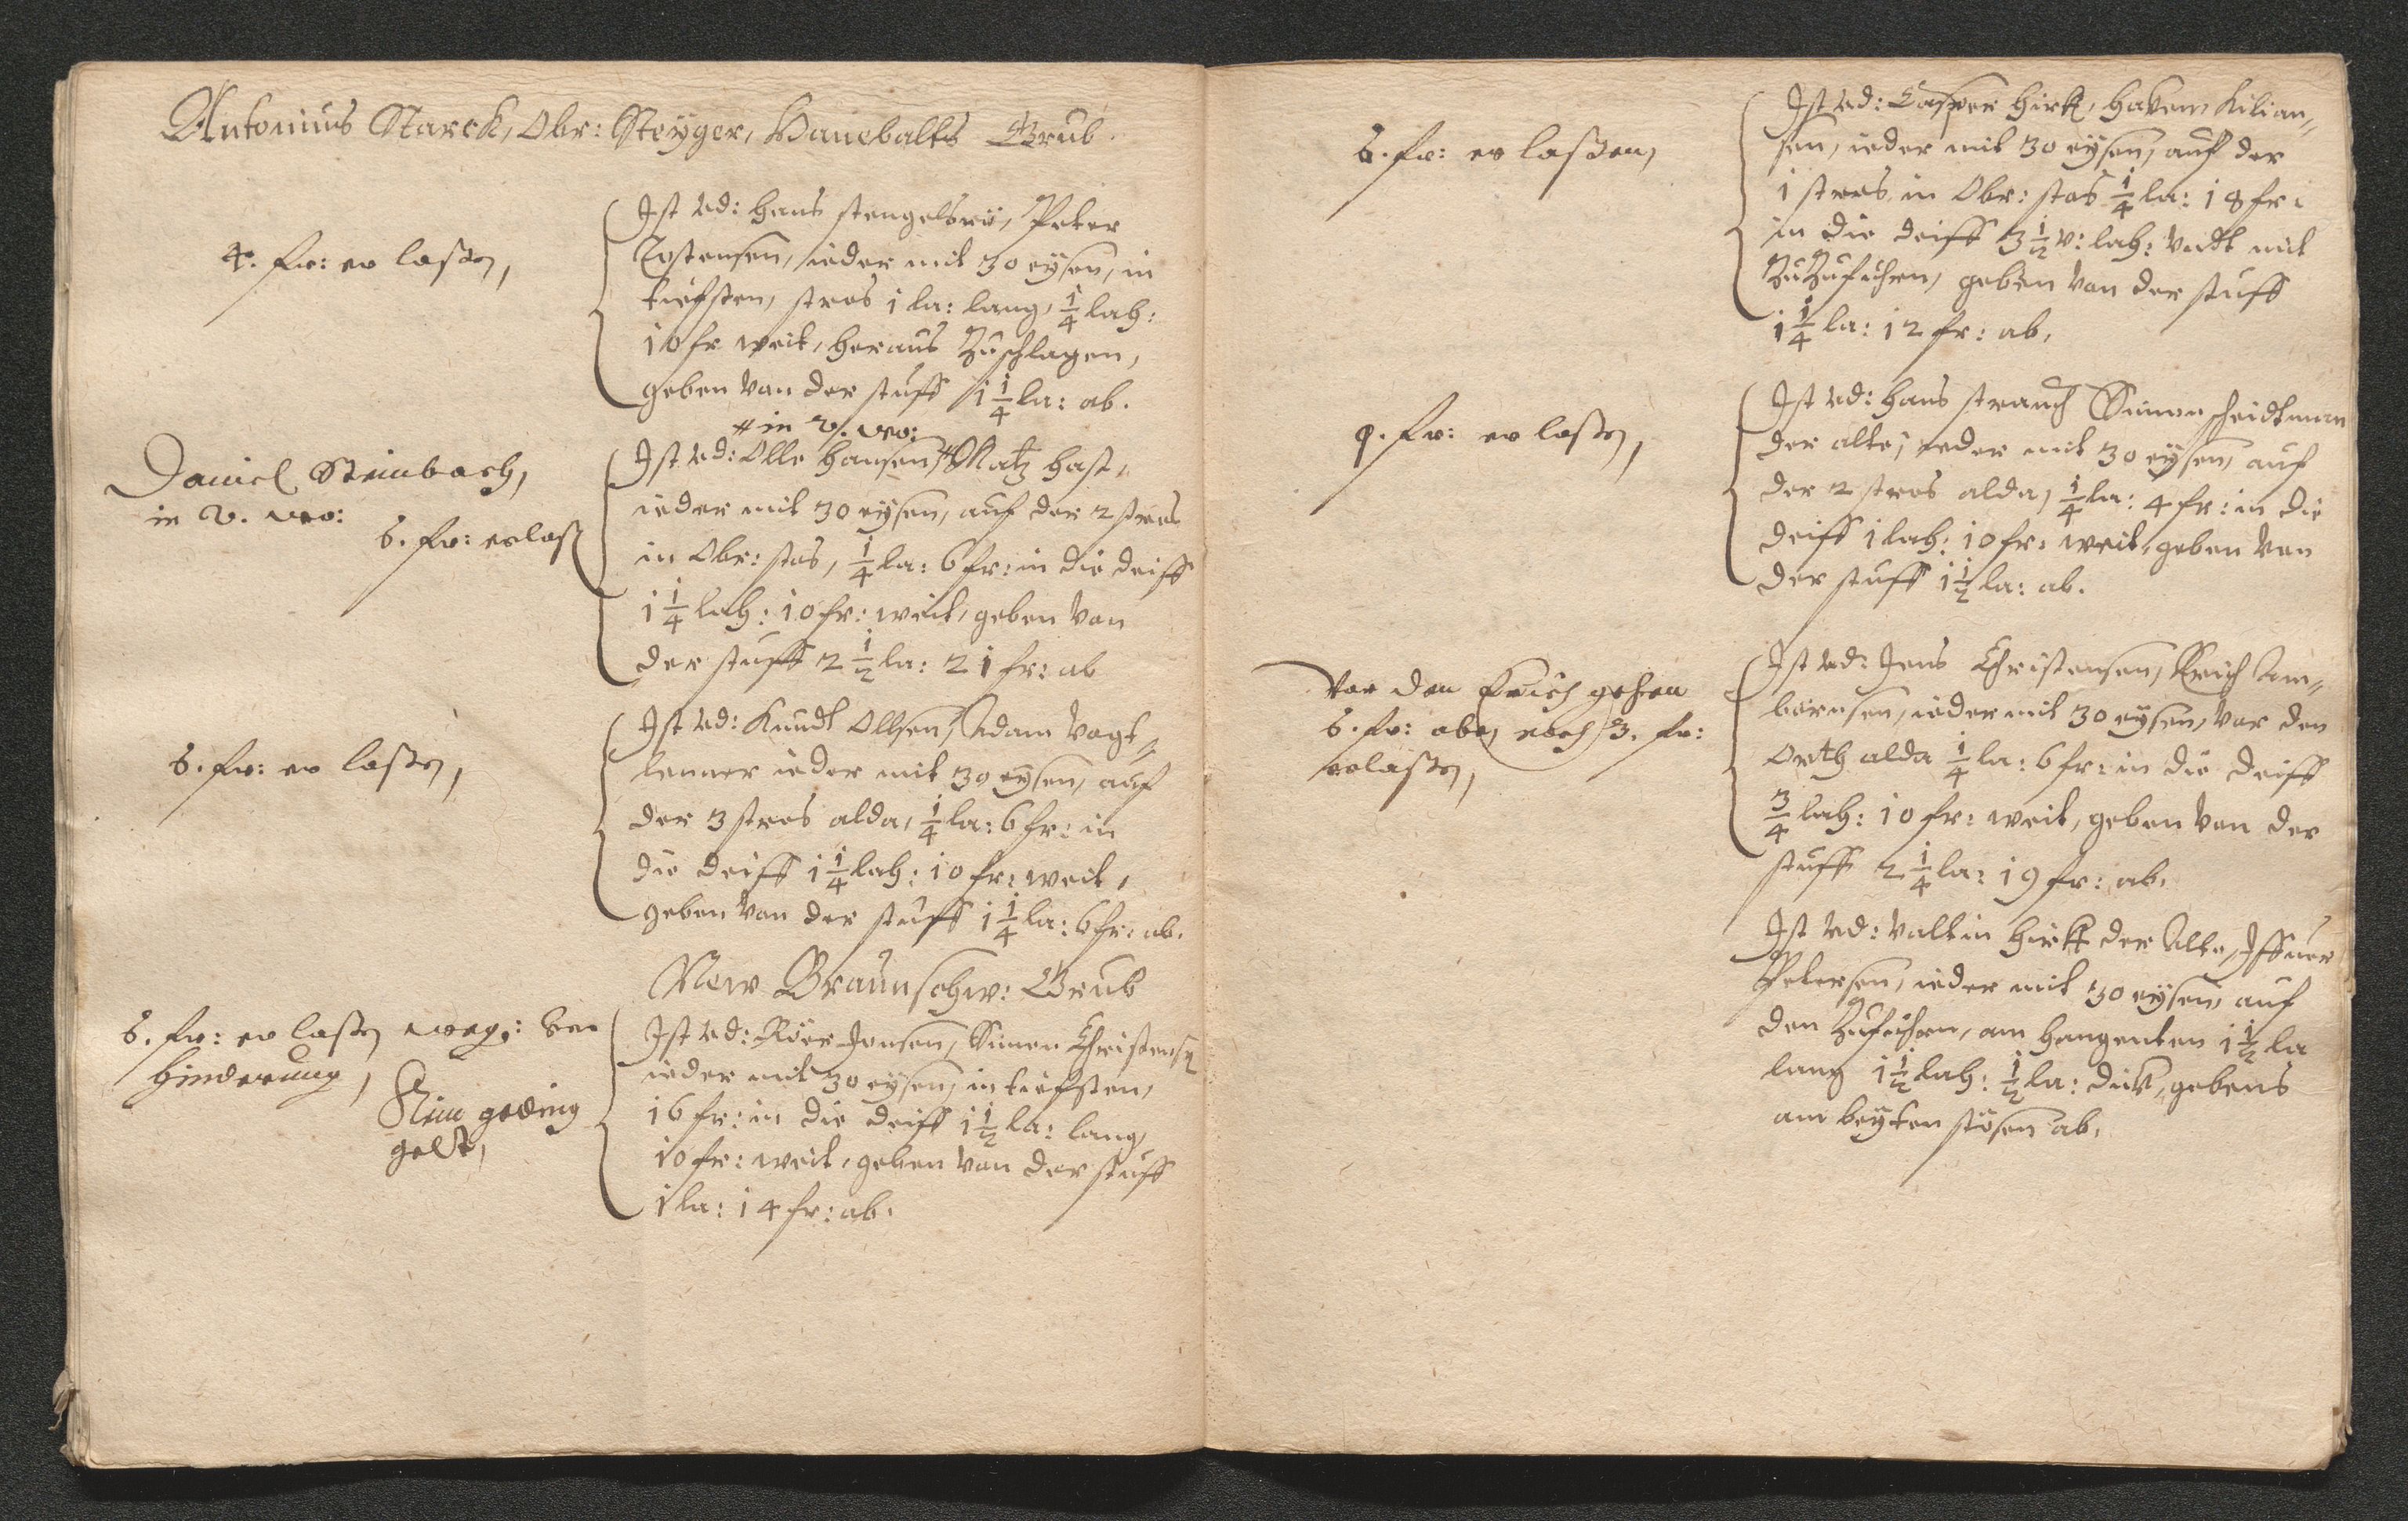 Antonius Starck, Obr: Steyger, Hanebalts Grub.
4. fr: er laßen,
Ist vd: Hans stengelsrü, Peter
Tostensen, ieder mit 30 eysen, in
tiefsten, stros 1 la: lang, 1/4 lah:
10 fr weit, heraus Zuschlagen,
geben Van der stuff 1 1/4 la: ab.
# in V. wo:
Daniel Steinbach,
in V. wo:
6. fr: erlaß
Ist vd: Olle Hansen # Matz Hast,
ieder mit 30 eysen, auf der 2 stros
in Obr: stos, 1/4 la: 6 fr: in die deiff
1 1/4 lah: 10 fr: weit, geben Van
der stuff 2 1/2 la: 21 fr: ab
6. fr: er laßen,
Ist vd: Knudt Ollsen, Adam Vogt„
lenner ieder mit 30 eysen, auf
der 3 stros alda, 1/4 la: 6 fr: in
die deiff 1 1/4 lah: 10 fr: weit,
geben Van der stuff 1 1/4 la: 6 fr: ab.
New Braunschw: Grub
6. fr: er laßen weg: Ver
hinderung,
geding
gelt,
Ist vd: Röer Jonsen, Simen Christensen
ieder mit 30 eysen, in tiefsten,
16 fr: in die deiff 1 1/2 la: lang,
10 fr: weit, geben Van der stuff
1 la: 14 fr: ab.
6. fr: er laßen,
Ist vd: Casper Hirk, Haken Kilian„
sen, ieder mit 30 eysen, auf der
1 stros in Obr: stos 1/4 la: 18 fr:
in die deiff 3 1/2 V: lah: Vndt mit
ZuZufuhren, geben Van der stuff
1 1/4 la: 12 fr: ab.
9. fr: er laßen,
Ist vd: Hans strauch Simen scheidtman
der alte, ieder mit 30 eysen, auf
der 2 stros alda, 1/4 la: 4 fr: in die
deiff 1 lah: 10 fr: weit, geben Van
der stuff 1 1/2 la: ab.
Vor den gehen
6. fr: abe, noch 3. fr:
erlaßen,
Ist vd: Jens Christensen, Erich Am„
bernsen, ieder mit 30 eysen, Vor den
Orth alda 1/4 la: 6 fr: in die deiff
3/4 lah: 10 fr: weit, geben Van der
stuff 2 1/4 la: 19 fr: ab.
Ist vd: Valtin Hirk der Alte, Iffuer
Petersen, ieder mit 30 eysen auf
den Zufuhren, am Hangenten 1 1/2 la
lang 1 1/2 lah: 1/2 la: dick, gebens
am beyten stösen ab.